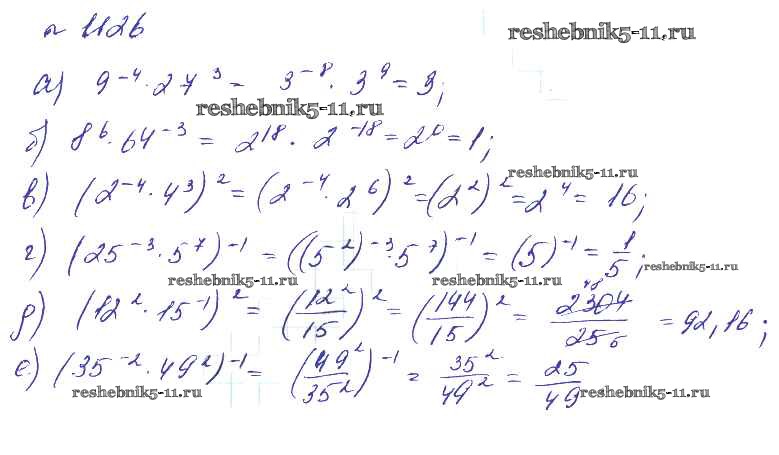 № 1126
reshebnik5-11.ru
а) 9⁻⁴ · 27³ = 3⁻⁸ · 3⁹ = 3;
reshebnik5-11.ru
б) 8⁶ · 64⁻³ = 2¹⁸ · 2⁻¹⁸ = 2⁰ = 1;
reshebnik5-11.ru
в) (2⁻⁴ · 4³)² = (2⁻⁴ · 2⁶)² = (2²)² = 2⁴ = 16;
г) (25⁻³ · 5⁷)⁻¹ = ((5²)⁻³ · 5⁷)⁻¹ = (5)⁻¹ = 1/5;
reshebnik5-11.ru reshebnik5-11.ru reshebnik5-11.ru
д) (12² · 15⁻¹)² = (12²/15)² = (144/15)² = 2304/25 = 92,16;
е) (35⁻² · 49²)⁻¹ = (49²/35²)⁻¹ = 35²/49² = 25/49
reshebnik5-11.ru reshebnik5-11.ru